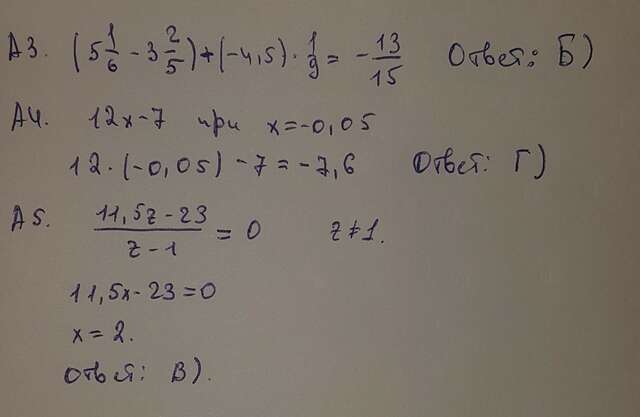 А3. (5 1/6 - 3 2/5) + (-4,5) · 1/9 = - 13/15 Ответ: Б)
А4. 12x-7 при x=-0,05
12·(-0,05) -7 = -7,6 Ответ: Г)
А5. (11,5z-23)/(z-1) = 0 z≠1.
11,5x-23=0
x=2.
Ответ: В).